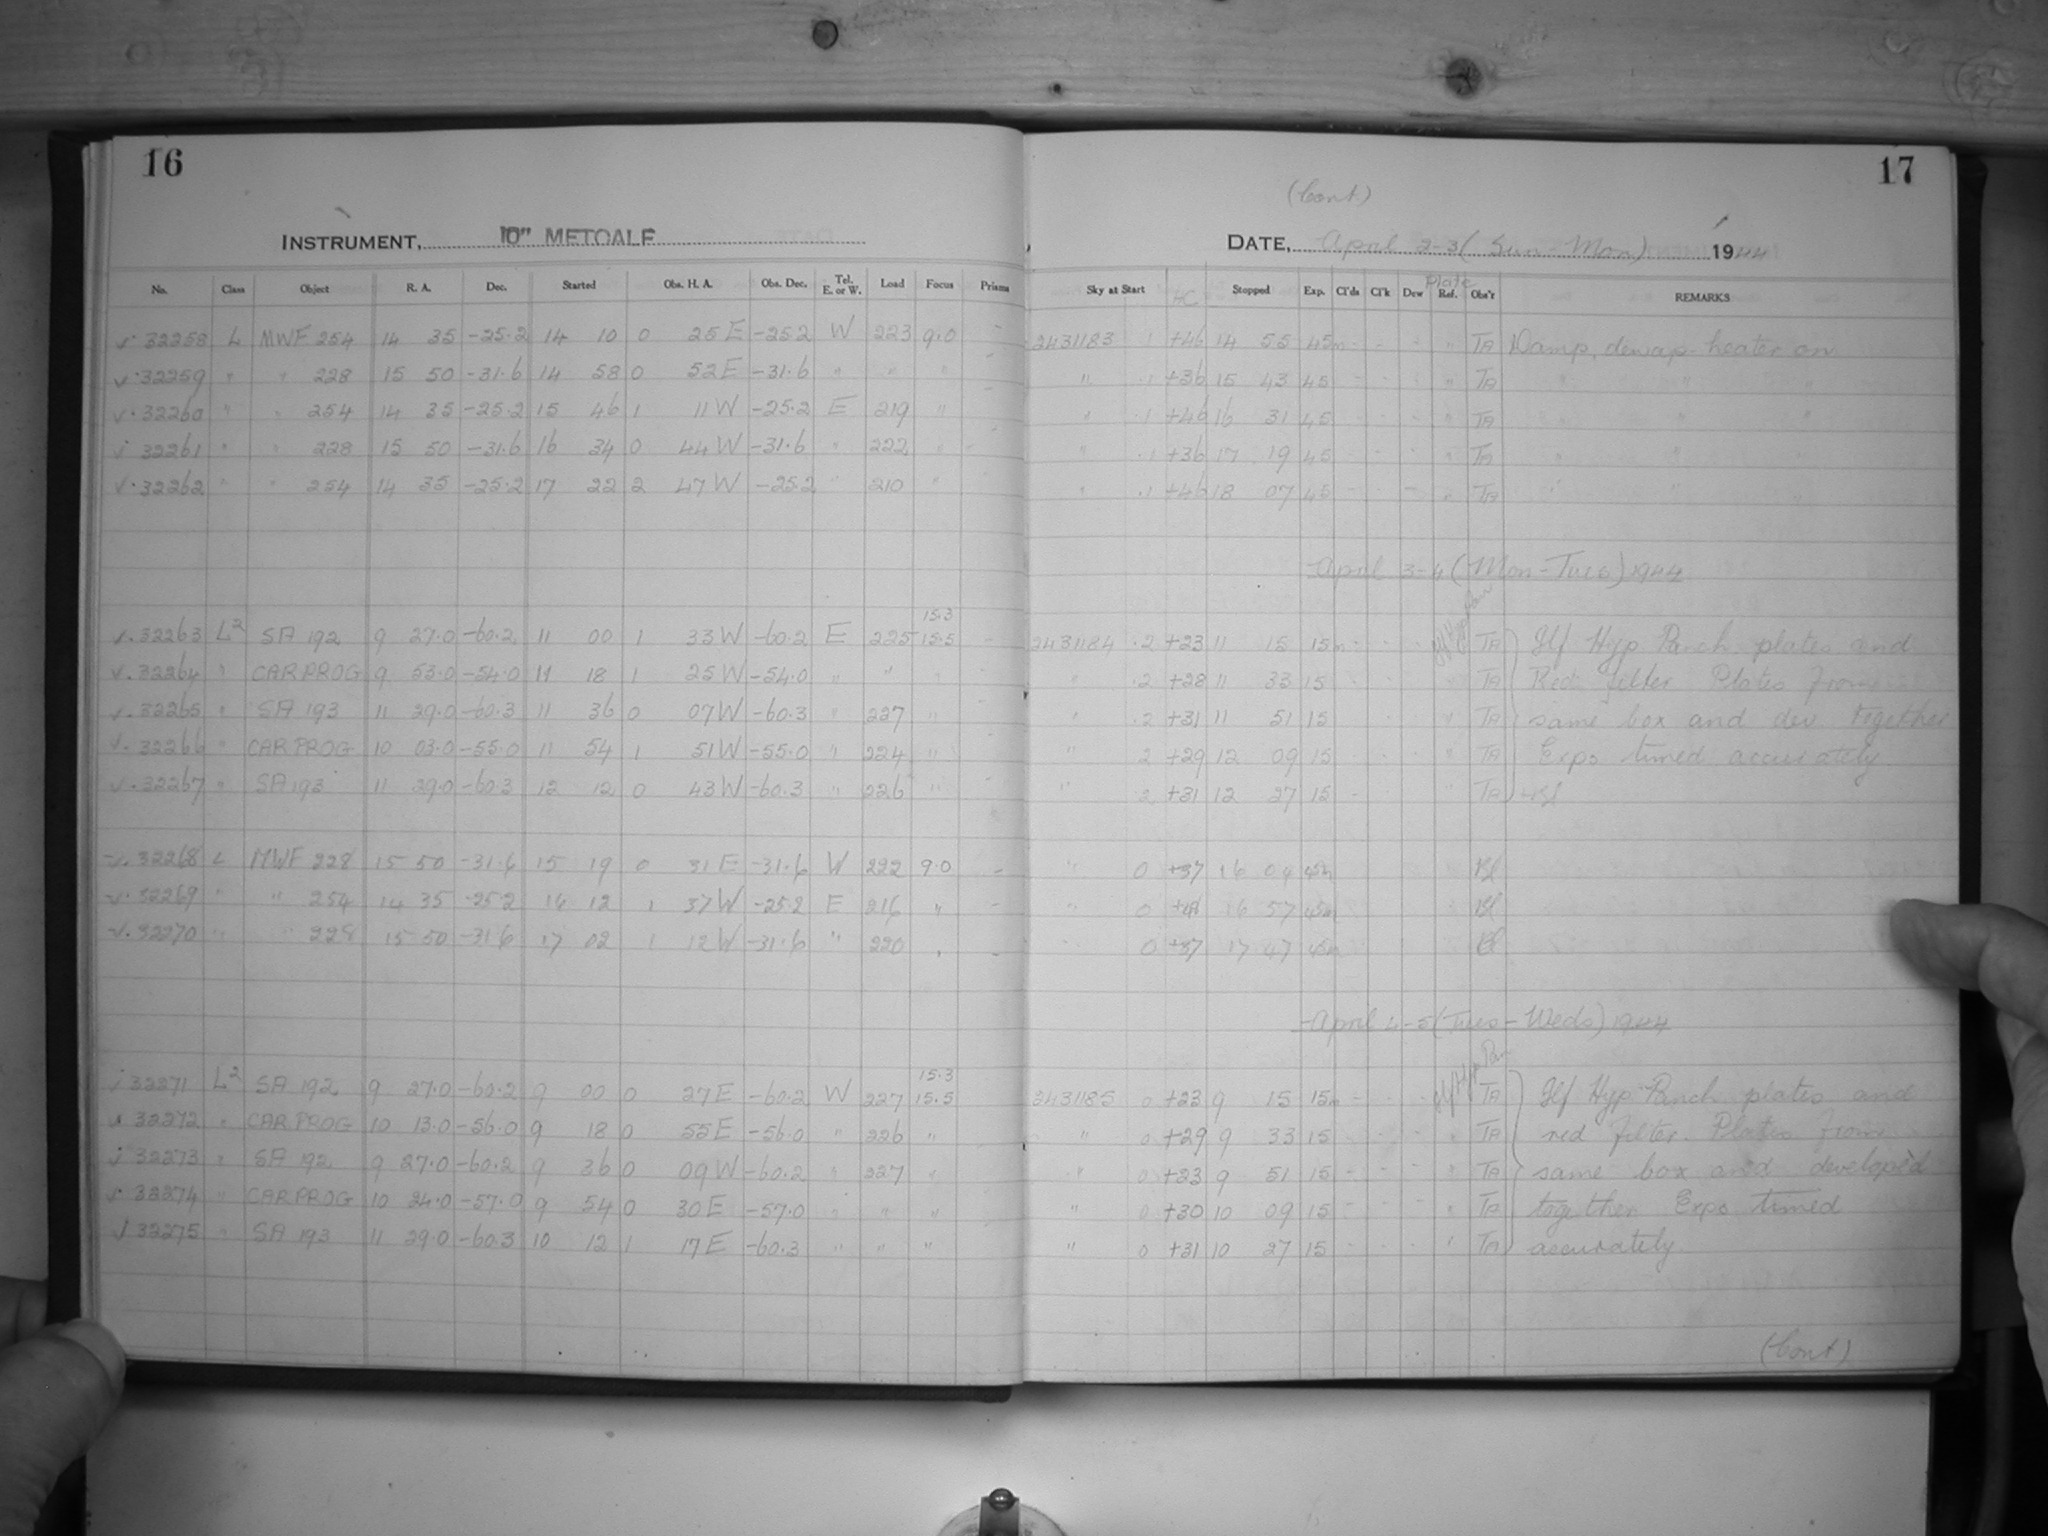 16
17
(Cont)
INSTRUMENT, 10" METCALF
DATE, April 2-3 (Sun-Mon) 1944
No. Class Object R. A. Dec. Started Obs. H. A. Obs. Dec. Tel. E. or W. Load Focus Prisms Sky at Start HC Stopped Exp. Cl'ds Cl'k Dew Plate Ref. Obs'r REMARKS
32258 L MWF 254 14 35 -25.2 14 10 0 25 E -25.2 W 223 9.0 - 2431183 .1 +46 14 55 45m - - " " TA Damp, dewcap heater on
32259 " " 228 15 50 -31.6 14 58 0 52 E -31.6 " " " " .1 +36 15 43 45 - - - " TA " " "
32260 " " 254 14 35 -25.2 15 46 1 11 W -25.2 E 219 " " .1 +46 16 31 45 TA " " "
32261 " " 228 15 50 -31.6 16 34 0 44 W -31.6 " 222 " " .1 +36 17 19 45 TA " " "
32262 " " 254 14 35 -25.2 17 22 2 47 W -25.2 " 210 " " .1 +46 18 07 45 - - - " TA " " "
April 3-4 (Mon-Tues) 1944
15.3
32263 L2 SA 192 9 27.0 -60.2 11 00 1 33 W -60.2 E 225 15.5 - 2431184 .2 +23 11 15 15m - - - Ilf Hyp Pan TA Ilf Hyp Panch plates and
32264 " CAR PROG 9 53.0 -54.0 11 18 1 25 W -54.0 " " " " .2 +28 11 33 15 TA Red filter Plates From
32265 " SA 193 11 29.0 -60.3 11 36 0 07 W -60.3 " 227 " " .2 +31 11 51 15 TA same box and dev together
32266 " CAR PROG 10 03.0 -55.0 11 54 1 51 W -55.0 " 224 " " 2 +29 12 09 15 TA Expo timed accurately
32267 " SA 193 11 29.0 -60.3 12 12 0 43 W -60.3 " 226 " " 2 +31 12 27 15 TA
32268 L MWF 228 15 50 -31.6 15 19 0 31 E -31.6 W 222 9.0 - " 0 +37 16 04 45m Bl
32269 " " 254 14 35 -25.2 16 12 1 37 W -25.2 E 216 " - " 0 16 57 45m Bl
32270 " " 228 15 50 -31.6 17 02 1 12 W -31.6 " 220 " - " 0 +37 17 47 45m Bl
April 4-5 (Tues-Weds) 1944
15.3
32271 L2 SA 192 9 27.0 -60.2 9 00 0 27 E -60.2 W 227 15.5 2431185 0 +23 9 15 15m - - - Ilf Hyp Pan TA Ilf Hyp Panch plates and
32272 " CAR PROG 10 13.0 -56.0 9 18 0 55 E -56.0 " 226 " " 0 +29 9 33 15 TA red filter. Plates From
32273 " SA 192 9 27.0 -60.2 9 36 0 09 W -60.2 " 227 " " 0 +23 9 51 15 TA same box and developed
32274 " CAR PROG 10 24.0 -57.0 9 54 0 30 E -57.0 " " " " 0 +30 10 09 15 TA together Expo timed
32275 " SA 193 11 29.0 -60.3 10 12 1 17 E -60.3 " " " " 0 +31 10 27 15 TA accurately
(Cont)